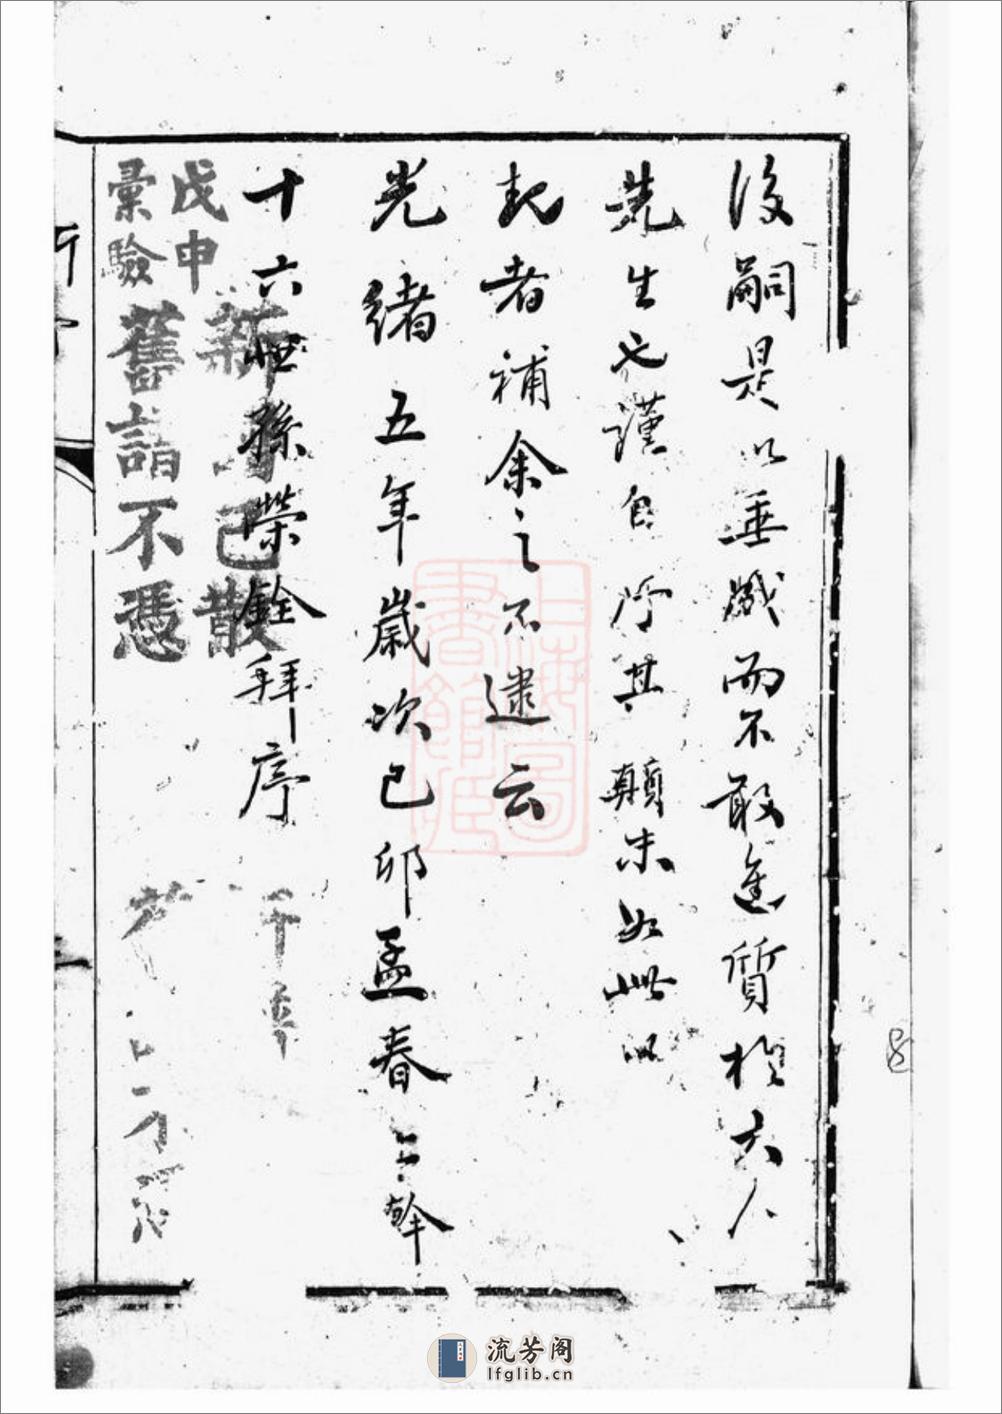 後嗣是以垂戱而不敢遽質於大人
先生也謹自序其顛末如此以
起者補余之不逮云
光緒五年歲次己卯孟春三幹
十六世孫榮銓拜序
戊申
彙驗
新已散
舊譜不憑
上海圖
書館藏
8
流芳阁
lfglib.cn